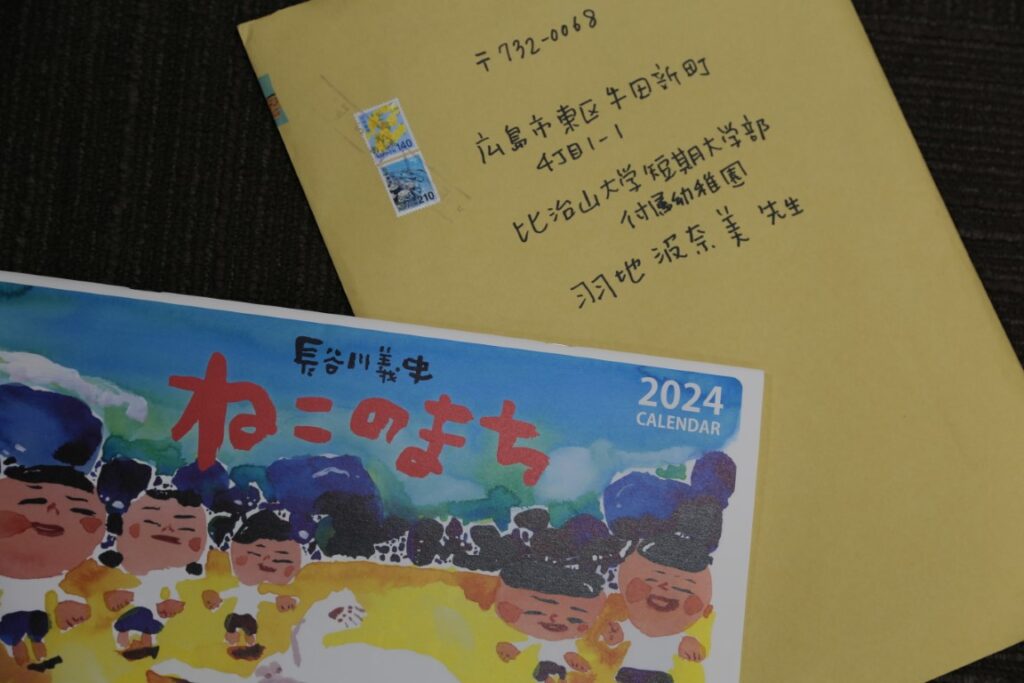 〒732-0068
広島市東区牛田新町
4丁目1-1
比治山大学短期大学部
付属幼稚園
羽地波奈美 先生
140
210
長谷川義史
ねこのまち
2024
CALENDAR